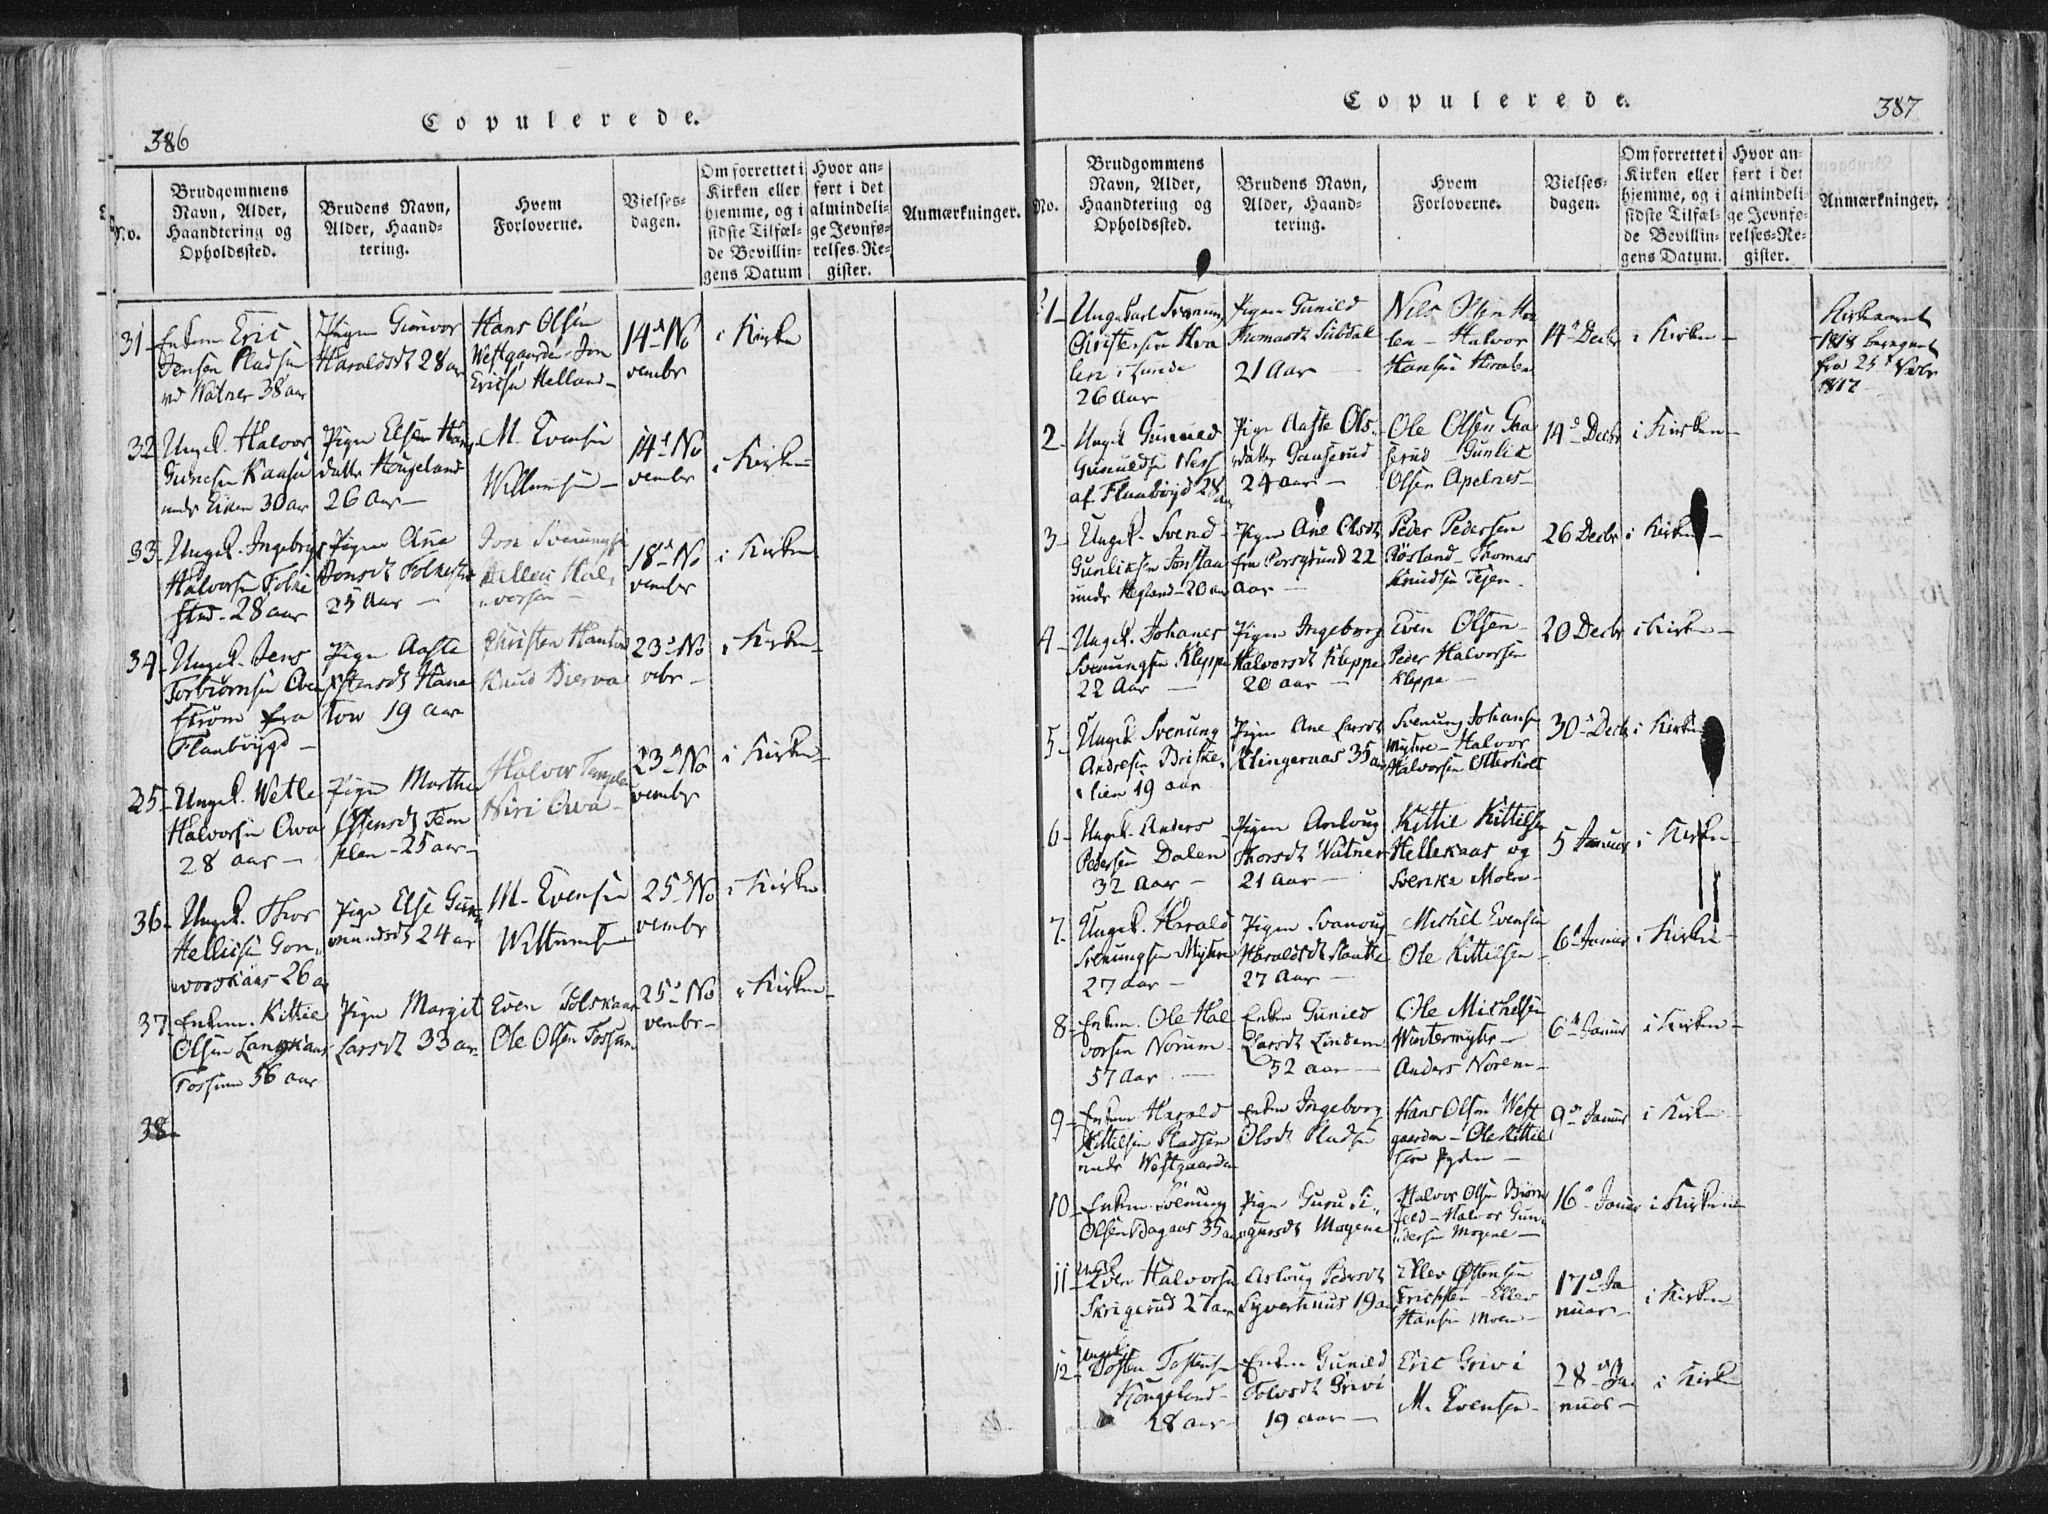 386
Copulerede.
No.
Brudgommens Navn, Alder, Haandtering og Opholdssted.
Brudens Navn, Alder, Haandtering.
Hvem Forloverne.
Vielsesdagen.
Om forrettet i Kirken eller hjemme, og i sidste Tilfælde Bevillingens Datum
Hvor anført i det almindelige Jevnførelses-Register.
Anmærkninger.
31
Enkem Eric
Jensen Pladsen
Watner 38 aar
Pigen Gunvor
Haraldsdt 28 aar
Hans Olsen
Westgaarden Jon
Ericsen Helland
14de No
vembr
i Kirken
32
Ungk. Halvor
under Eisen 30 aar
Pigen Elsen Hans
datter Hougeland
26 Aar
M. Evensen
14de No
vembr
i Kirken
33
Ungk. Ingebregt
Halvorsen Folke
stad 28 aar
Pigen Ane
Jonsdt Folkestad
25 Aar
Jon Svenungsen
Hellec Hal
vorsen
18de No
vembr
i Kirken
34
Ungk. Jens
Torbiornsen
strøm fra
Flaabøygd
Pigen Aaste
Ostensdt Hane
tow 19 aar
Christen Hanetow
Knud Bierva
23de No
vbr
i Kirken
25
Ungk. Wetle
Halvorsen Owa
28 aar
Pigen Marthe
Ostensdt Tem
plen 25 aar
Halvor Templen
Niri Owa
23de No
vembr
i Kirken
36
Ungk. Thor
Hellecsen Gon
vorskaas 26 a
Pige Else Gun
mundsdt 24 ar
M. Evensen
25de No
vembr
i Kirken
37
Enkem. Kittil
Olsen Langkaas
Tossum 56 aar
Pigen Margit
Larsdt 33 ar
Even Solskaas
Ole Olsen Tossum
25de No
vembr
i Kirken
38
387
Copulerede.
No.
Brudgommens Navn, Alder, Haandtering og Opholdssted.
Brudens Navn, Alder, Haandtering.
Hvem Forloverne.
Vielsesdagen.
Om forrettet i Kirken eller hjemme, og i sidste Tilfælde Bevillingens Datum.
Hvor anført i det almindelige Jevnførelses-Register.
Anmærkninger.
1
Ungekarl Svenung
Christensen Hva
len i Lunde
26 Aar
Pigen Gunild
Thomasdt Sübdal
21 Aar
Nils Olsen Hva
len Halvor
Hansen Hvalen
14de Decbr
i Kirken
Kirkeaaret
1818 beregnet
fra 25de Novbr
1817
2
Ungk Gunuld
Gunuldsen Ness
af Flaabøygd 28 aar
Pige Aaste Ols
datter Gaaserud
24 aar
Ole Olsen Gaa
serud Gunlek
Olsen Apelnes
14de Decbr
i Kirken
3
Ungk. Svend
Gunliksen
under Hegland 20 aar
Pigen Ane Olsdt
fra Porsgrund 22
Aar
Peder Pedersen
Røsland Thomas
Knudsen Tejen
26 Decbr
i Kirken
4
Ungk. Johanes
Svenungsen Kleppe
22 Aar
Pigen Ingeborg
Halvorsdt Kleppe
20 aar
Even Olsen
Peder Halvorsen
Kleppe
20 Decbr
i Kirken
5
Ungk Svenung
Andresen Britke
lien 19 aar
Pigen Ane Larsdt
Klingernaas 35 aar
Svenung Johansen
Myhre Halvor
Halvorsen Otterholt
30de Decbr
i Kirken
6
Ungk. Anders
Pedersen Dalen
32 Aar
Pigen Anloug
Thorsdt Watner
21 Aar
Kittil Kittilsen
Hellekaas og
Svenke Moen
5 Januar
i Kirken
7
Ungk. Harald
Svenungsen Myhre
27 aar
Pigen Svanoug
Haraldsdt Haatke
27 Aar
Michel Evensen
Ole Kittilsen
6te Januar
i Kirken
8
Enkem. Ole Hal
vorsen Norum
57 Aar
Enken Gunild
Larsdt Lindem
52 aar
Ole Michelsen
Wintermyhr
Anders Norem
6te Januar
i Kirken
9
Enkem Harald
Kittilsen Pladsen
under Westgaarden
Enken Ingeborg
Olsdt Pladsen
Hans Olsen West
gaarden Ole Kittil
sen Ryden
9de Januar
i Kirken
10
Enkem Svenung
Olsen Dagaas 35 aar
Pigen Guru Si
gursdt Mogene
Halvor Olsen Biørn
feld Halvor Gun
dersen Mogene
16de Januar
i Kirken
11
Ungk
Even Halvorsen
Skrigerud 27 aar
Aslaug Pedersdt
Syverhuus 19 aar
Ellev Ostensen
Erichsen Ellev
Hansen Moen
17de Ja
nuar
i Kirken
12
Ungk.
Tosten Tostensen
Hougeland
28 aar
Enken Gunild
Tolvsdt Grivi
19 aar
Eric Grivi
M. Evensen
28de Ja
nuar
i Kirken